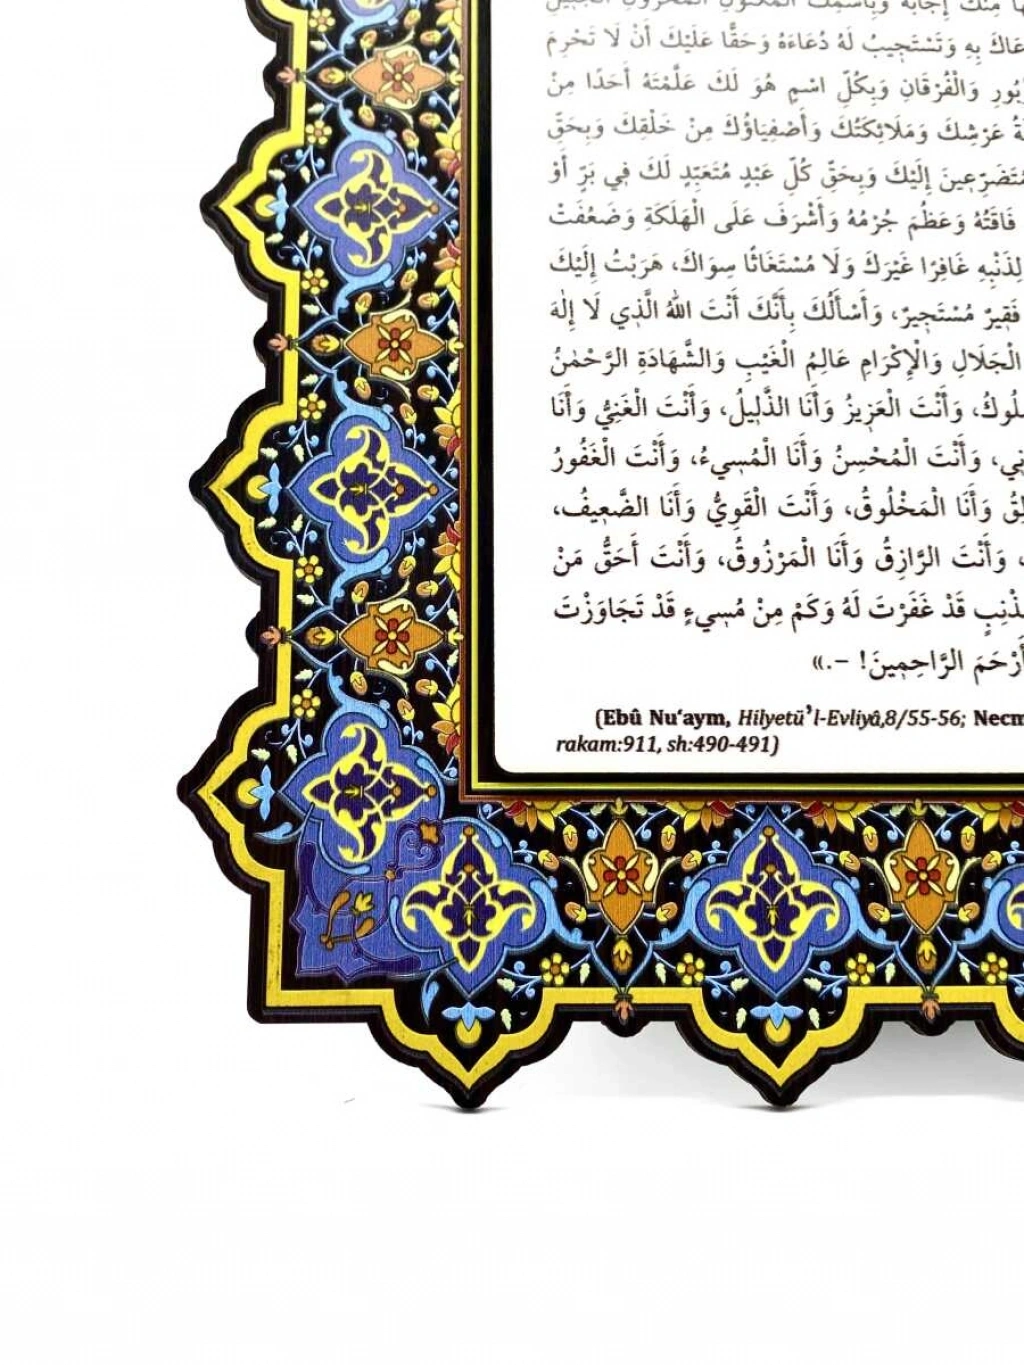 مِنْكَ إِجَابَةً وَبِاسْمِكَ الْمَكْنُونِ الْمَخْزُونِ الْجَلِيلِ
عَاكَ بِهِ وَتَسْتَجِيبُ لَهُ دُعَاءَهُ وَحَقًّا عَلَيْكَ أَنْ لَا تَحْرِمَ
بُورِ وَالْفُرْقَانِ وَبِكُلِّ اسْمٍ هُوَ لَكَ عَلَّمْتَهُ أَحَدًا مِنْ
ةُ عَرْشِكَ وَمَلَائِكَتُكَ وَأَصْفِيَاؤُكَ مِنْ خَلْقِكَ وَبِحَقِّ
مُتَضَرِّعِينَ إِلَيْكَ وَبِحَقِّ كُلِّ عَبْدٍ مُتَعَبِّدٍ لَكَ فِي بَرٍّ أَوْ
فَاقَتُهُ وَعَظُمَ جُرْمُهُ وَأَشْرَفَ عَلَى الْهَلَكَةِ وَضَعُفَتْ
لِذَنْبِهِ غَافِرًا غَيْرَكَ وَلَا مُسْتَغَاثًا سِوَاكَ، هَرَبْتُ إِلَيْكَ
فَقِيرٌ مُسْتَجِيرٌ، وَأَسْأَلُكَ بِأَنَّكَ أَنْتَ اللهُ الَّذِي لَا إِلٰهَ
الْجَلَالِ وَالْإِكْرَامِ عَالِمُ الْغَيْبِ وَالشَّهَادَةِ الرَّحْمٰنُ
مْلُوكُ، وَأَنْتَ الْعَزِيزُ وَأَنَا الذَّلِيلُ، وَأَنْتَ الْغَنِيُّ وَأَنَا
نِي، وَأَنْتَ الْمُحْسِنُ وَأَنَا الْمُسِيءُ، وَأَنْتَ الْغَفُورُ
لِقُ وَأَنَا الْمَخْلُوقُ، وَأَنْتَ الْقَوِيُّ وَأَنَا الضَّعِيفُ،
، وَأَنْتَ الرَّازِقُ وَأَنَا الْمَرْزُوقُ، وَأَنْتَ أَحَقُّ مَنْ
ذْنِبٍ قَدْ غَفَرْتَ لَهُ وَكَمْ مِنْ مُسِيءٍ قَدْ تَجَاوَزْتَ
أَرْحَمَ الرَّاحِمِينَ! –.»
(Ebû Nu‘aym, Hilyetü’l-Evliyâ,8/55-56; Necm
rakam:911, sh:490-491)